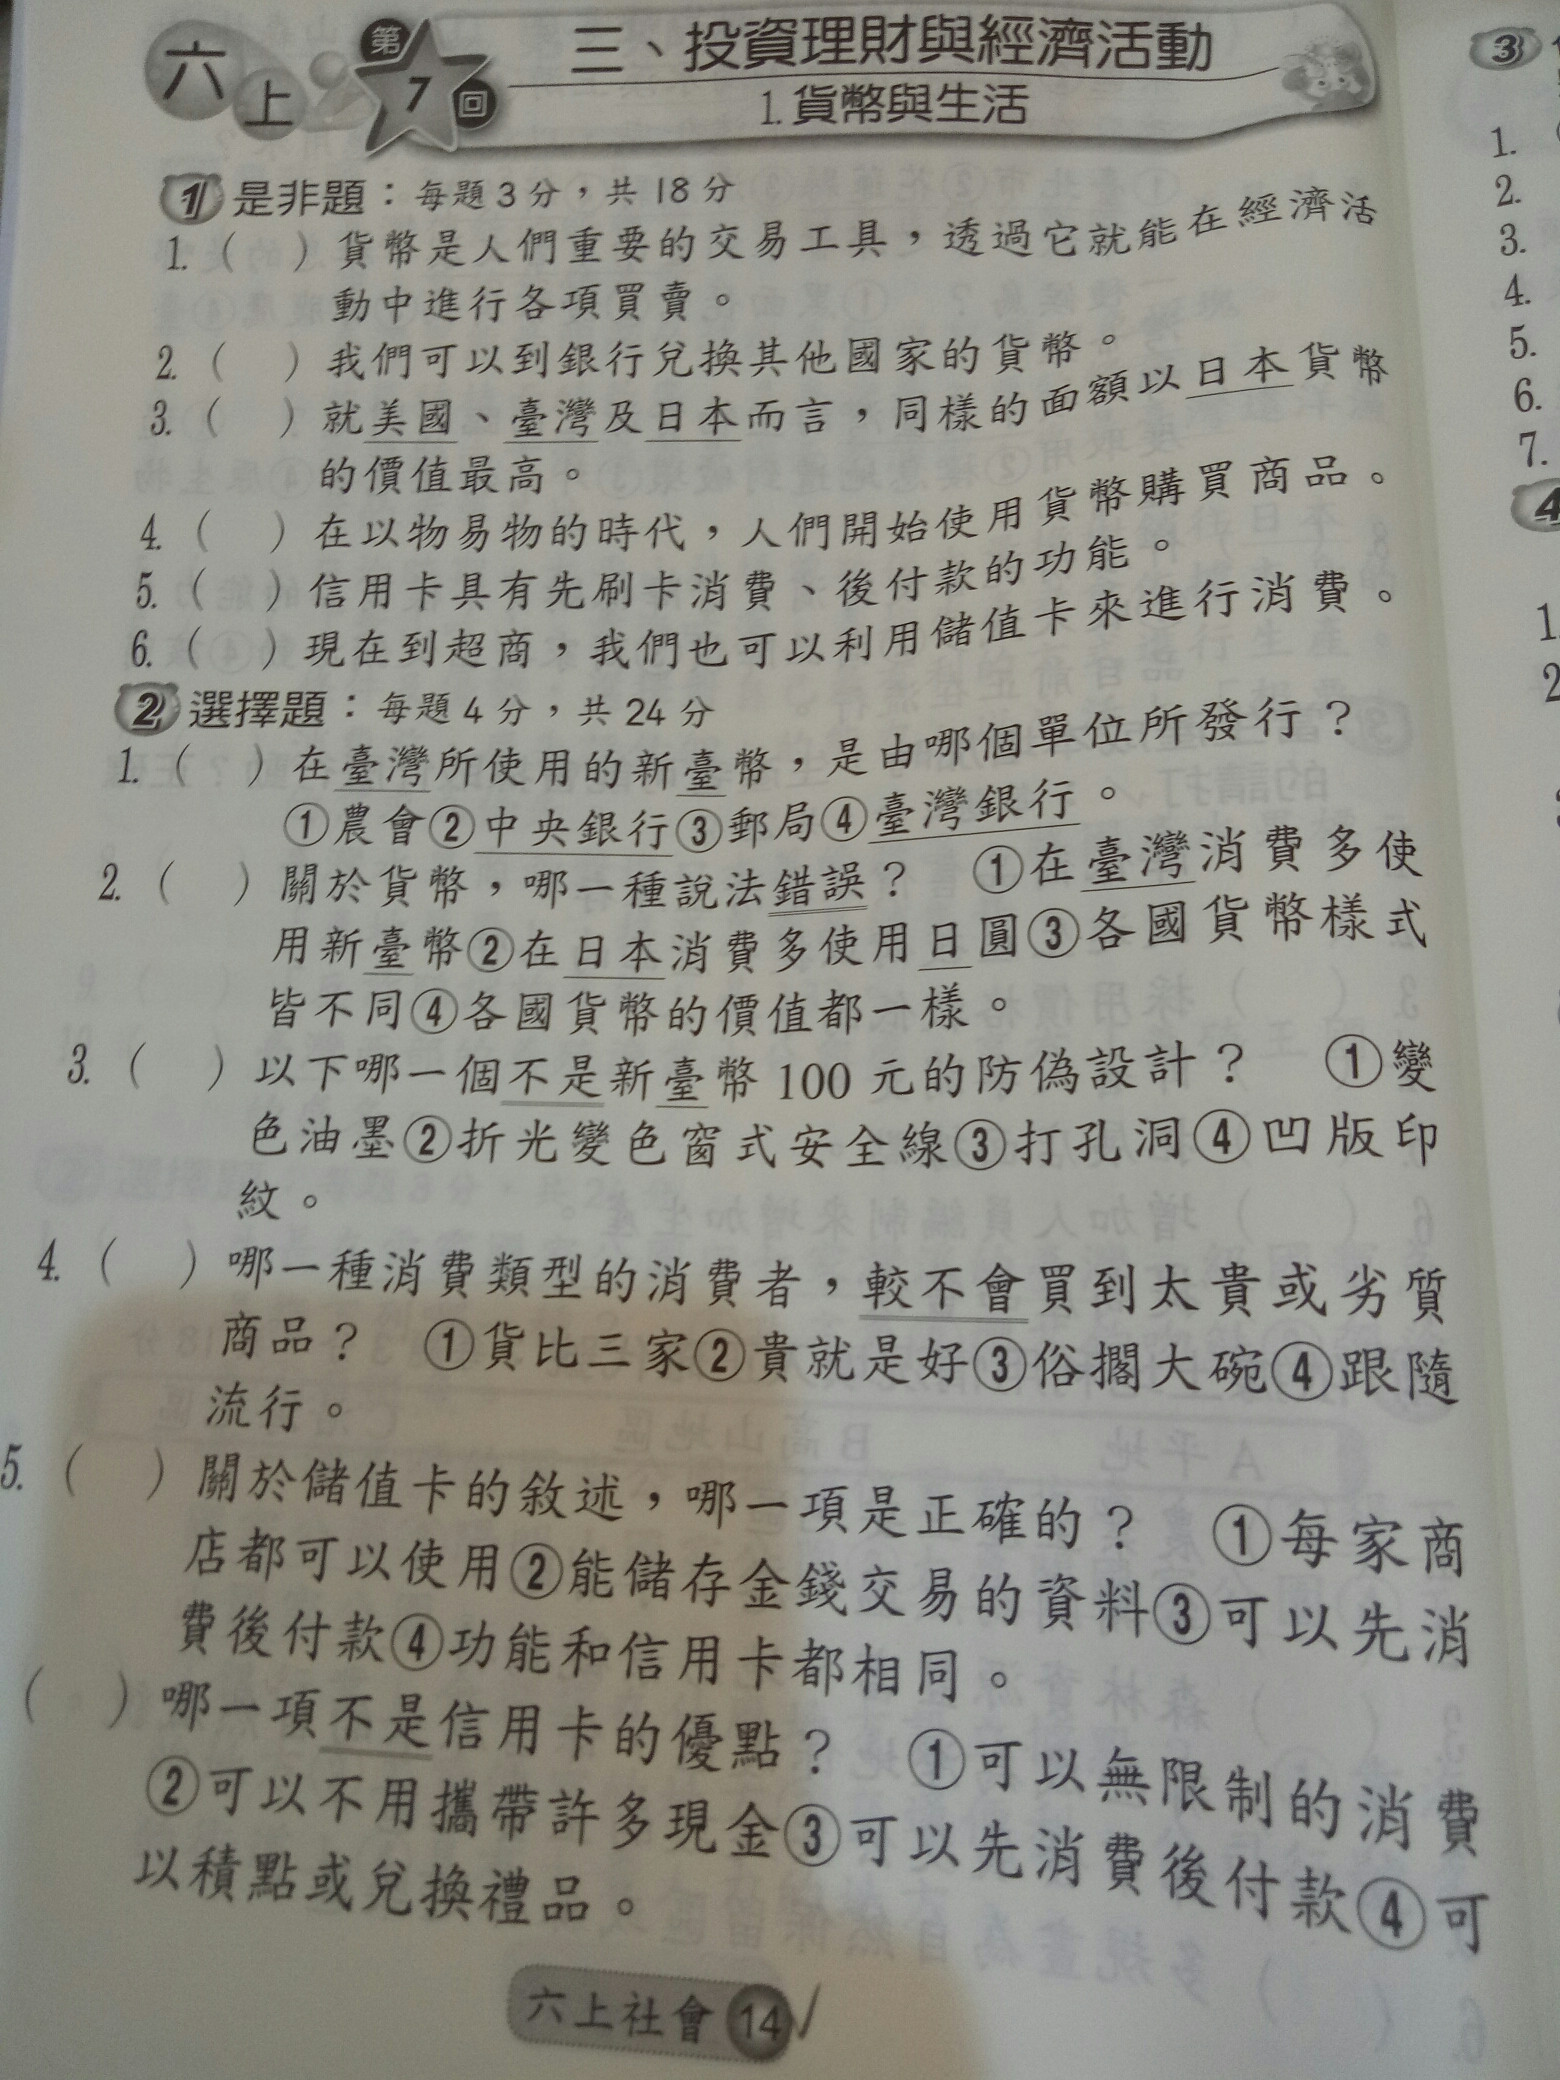 六上 第7回 三、投資理財與經濟活動
1.貨幣與生活
1 是非題：每題3分，共18分
1.（　）貨幣是人們重要的交易工具，透過它就能在經濟活
動中進行各項買賣。
2.（　）我們可以到銀行兌換其他國家的貨幣。
3.（　）就美國、臺灣及日本而言，同樣的面額以日本貨幣
的價值最高。
4.（　）在以物易物的時代，人們開始使用貨幣購買商品。
5.（　）信用卡具有先刷卡消費、後付款的功能。
6.（　）現在到超商，我們也可以利用儲值卡來進行消費。
2 選擇題：每題4分，共24分
1.（　）在臺灣所使用的新臺幣，是由哪個單位所發行？
①農會②中央銀行③郵局④臺灣銀行。
2.（　）關於貨幣，哪一種說法錯誤？　①在臺灣消費多使
用新臺幣②在日本消費多使用日圓③各國貨幣樣式
皆不同④各國貨幣的價值都一樣。
3.（　）以下哪一個不是新臺幣100元的防偽設計？　①變
色油墨②折光變色窗式安全線③打孔洞④凹版印
紋。
4.（　）哪一種消費類型的消費者，較不會買到太貴或劣質
商品？　①貨比三家②貴就是好③俗擱大碗④跟隨
流行。
5.（　）關於儲值卡的敘述，哪一項是正確的？　①每家商
店都可以使用②能儲存金錢交易的資料③可以先消
費後付款④功能和信用卡都相同。
（　）哪一項不是信用卡的優點？　①可以無限制的消費
②可以不用攜帶許多現金③可以先消費後付款④可
以積點或兌換禮品。
六上社會 14
3
1.
2.
3.
4.
5.
6.
7.
4
1
2